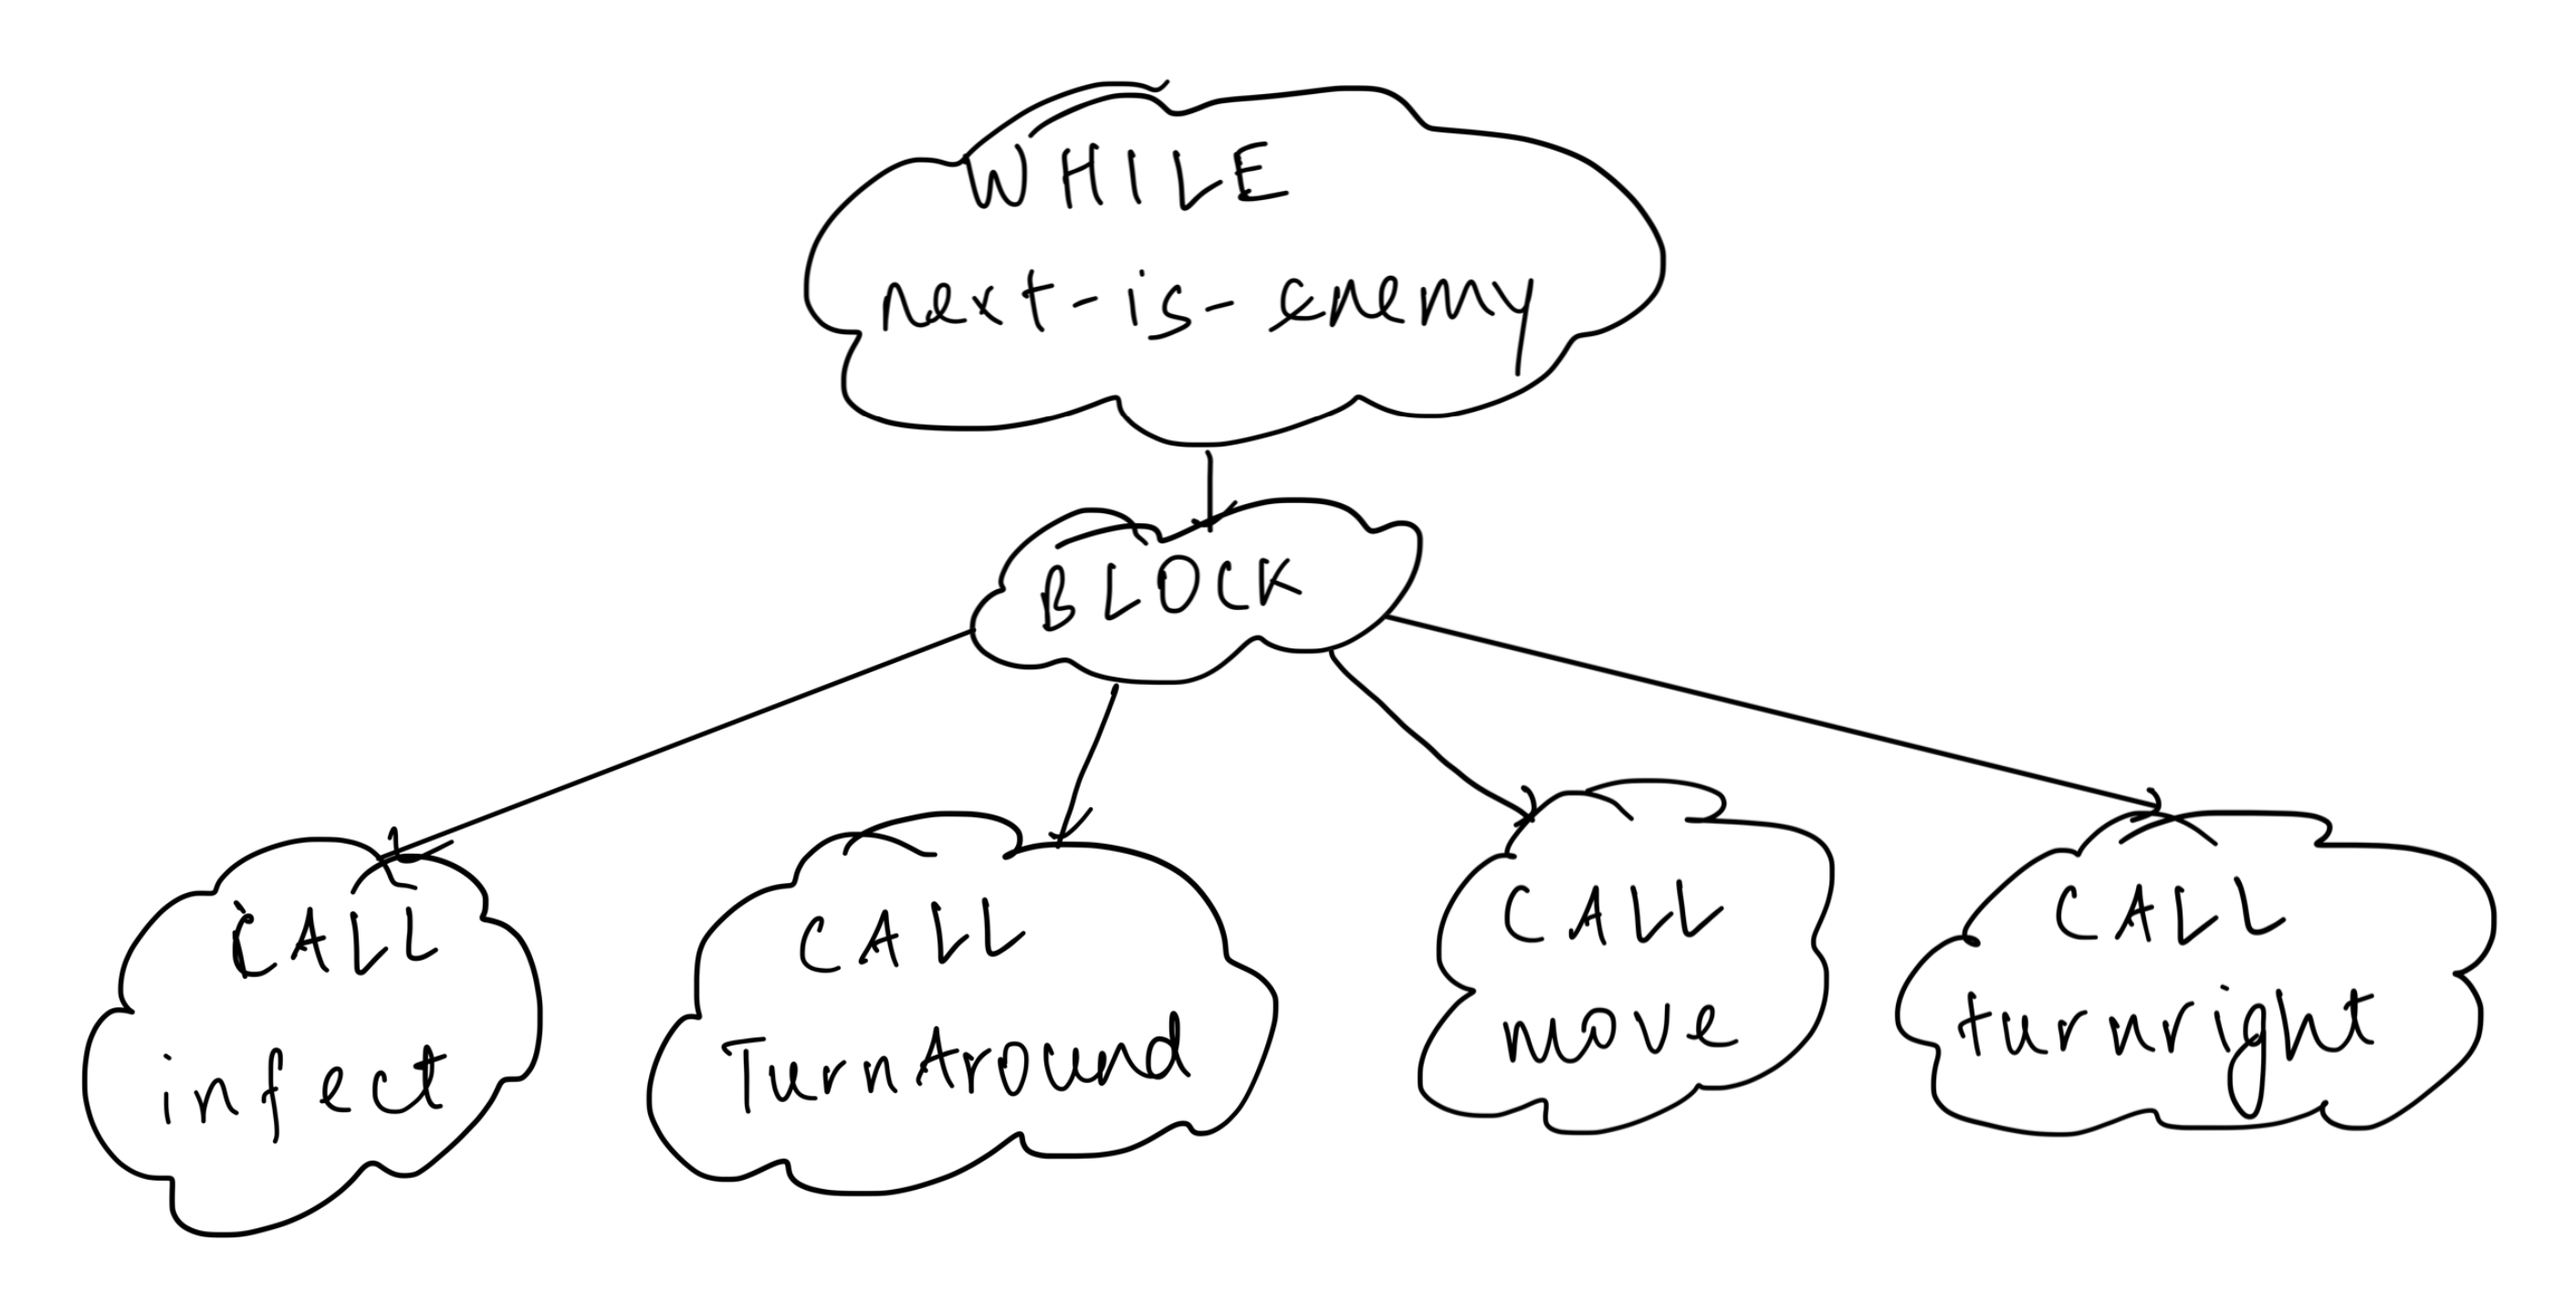 WHILE
next-is-enemy
BLOCK
CALL
infect
CALL
TurnAround
CALL
move
CALL
turnright